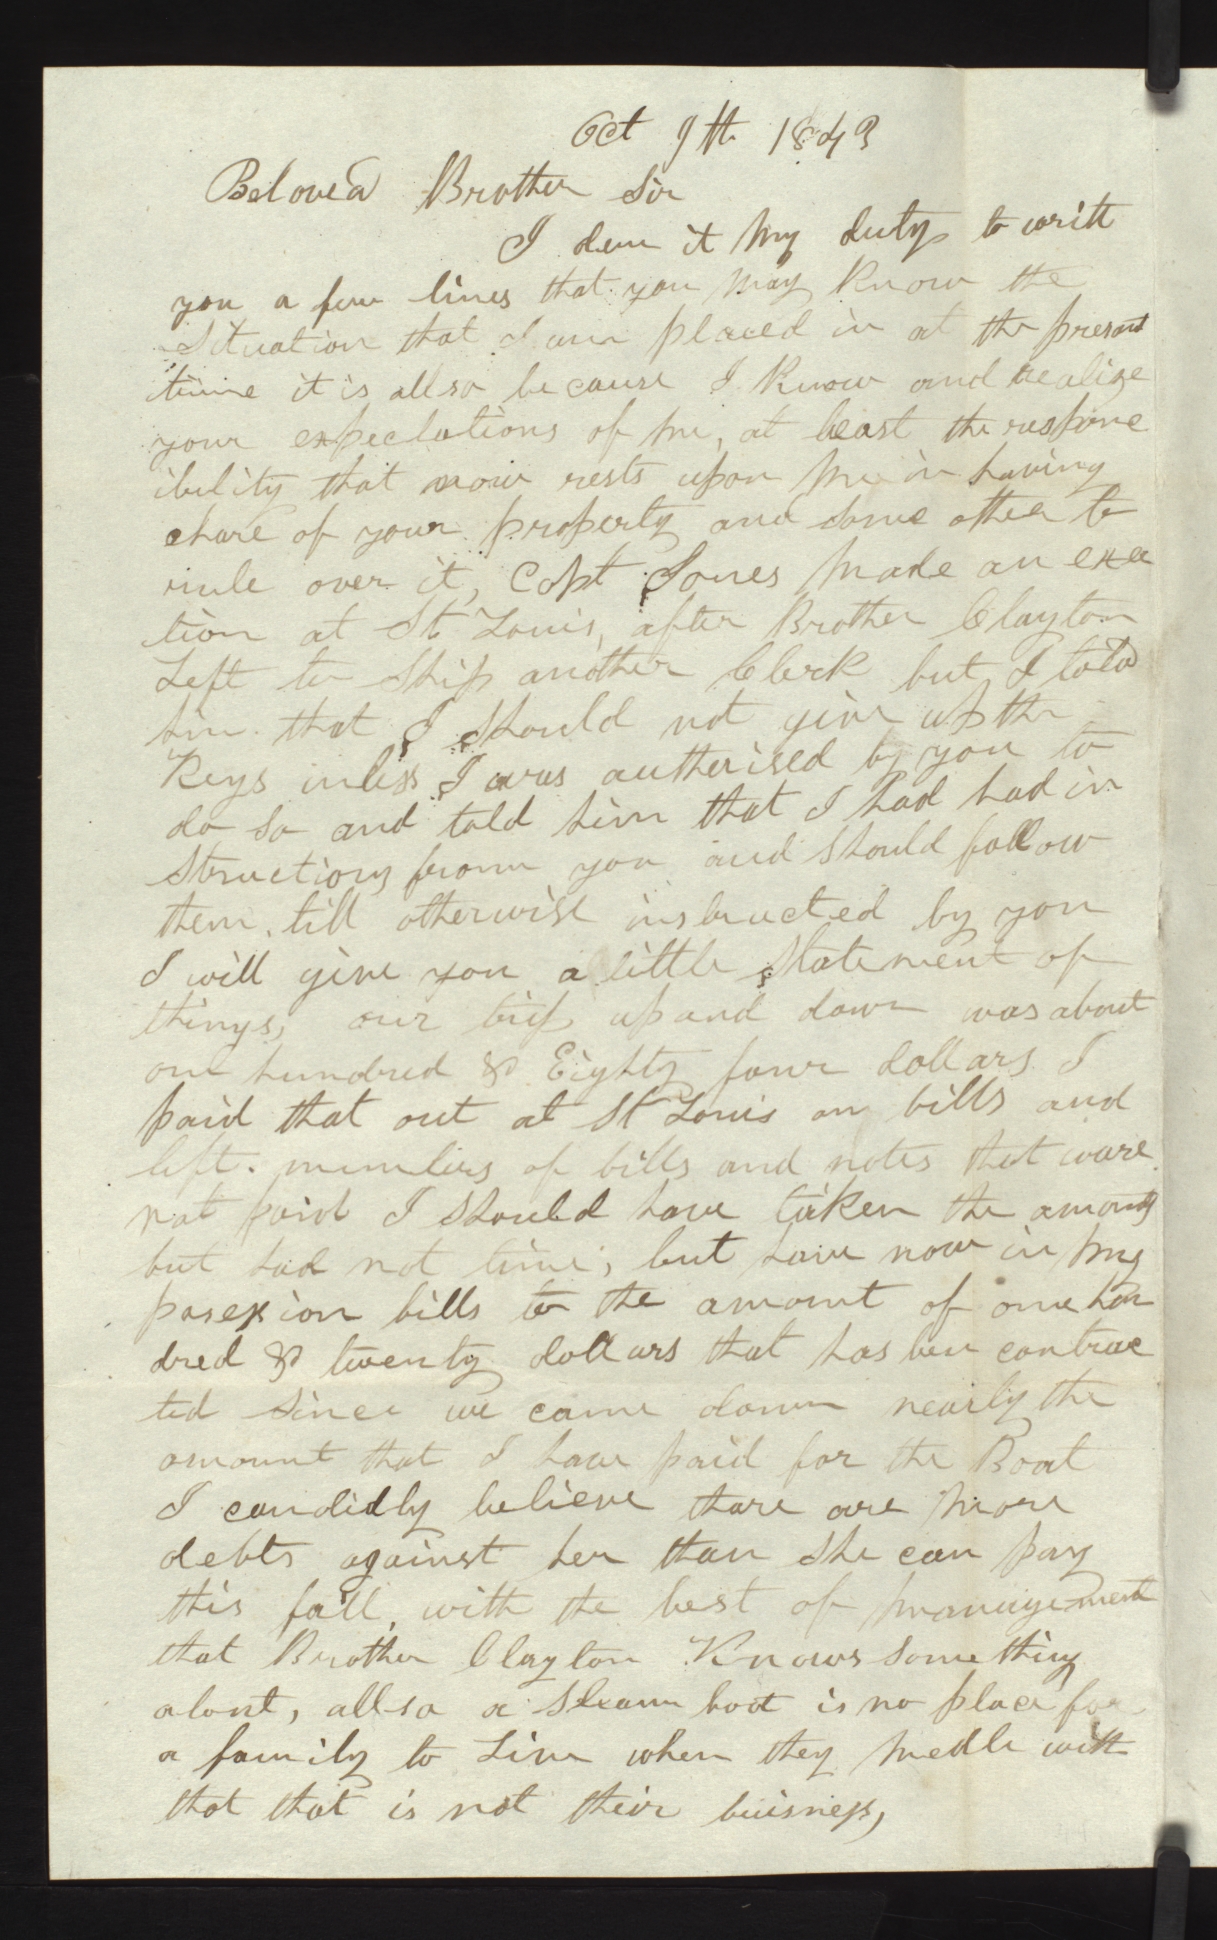 Oct 9th 1843
Beloved Brother Sir
I dem it my duty to writt
you a few lines that you may know the
Situation that I am placed in at the present
time it is allso because I know and realize
your expectations of me, at least the respons
ibility that now rests upon me in having
chare of your property and some other to
rule over it, Capt Jones made an exer
tion at St Louis, after Brother Clayton
Left to Ship another Clerk but I told
him that I should not give up the
Keys unless I was autherised by you to
do so and told him that I had had in
structions from you and should follow
them, till otherwise instructed by you
I will give you a little statement of
things, our trip up and down was about
one hundred & Eighty four dollars I
paid that out at St Louis on bills and
left numbers of bills and notes that ware
not paid I should have taken the amount
but had not time; but have now in my
posexion bills to the amount of one hun
dred & twenty dollars that has ben contrac
ted since we came down nearly the
amount that I have paid for the Boat
I candidly believe thare are more
debts against her than she can pay
this fall, with the best of management
that Brother Clayton Knows something
about, allso a steam boat is no place for
a family to Live when they medle with
that that is not their buisness,